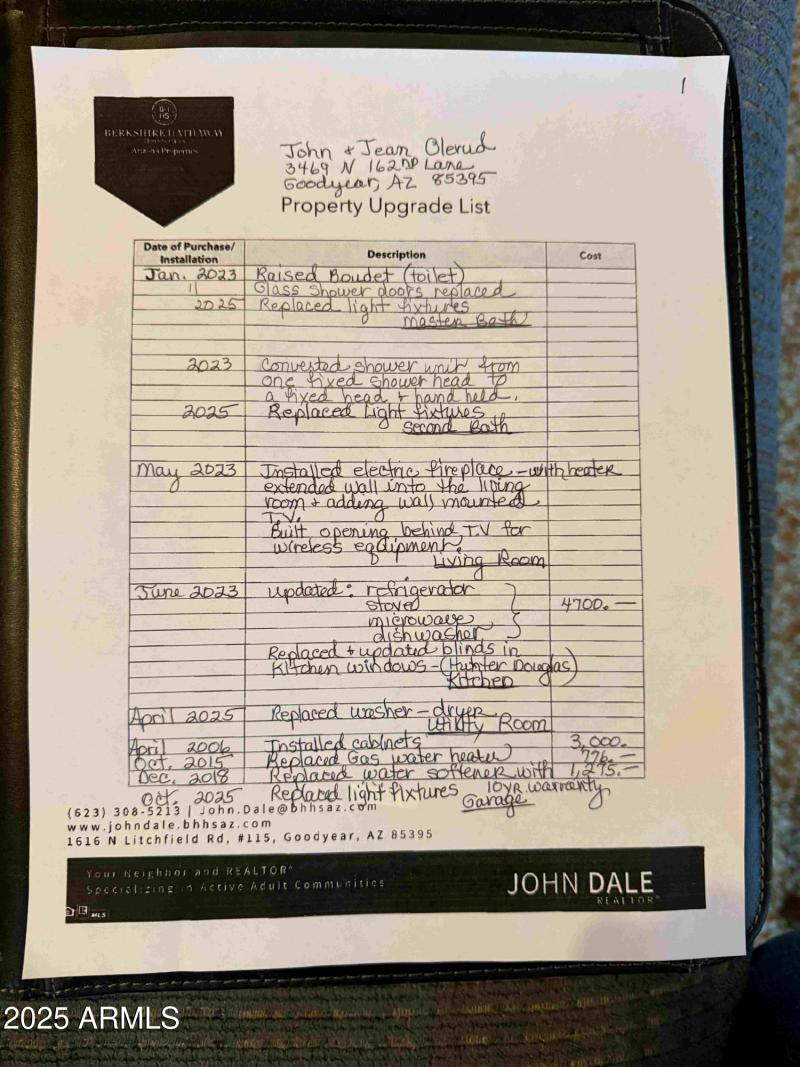 1
BERKSHIRE HATHAWAY
HomeServices
Arizona Properties
John + Jean Olerud
3469 N 162ND Lane
Goodyear, AZ 85395
Property Upgrade List
Date of Purchase/ Installation Description Cost
Jan. 2023 Raised Boudet (toilet)
11 Glass shower doors replaced
2025 Replaced light fixtures
Master Bath
2023 Converted shower unit from
one fixed shower head to
a fixed head + hand held.
2025 Replaced Light fixtures
Second Bath
May 2023 Installed electric fireplace - with heater
extended wall into the living
room + adding wall mounted
T.V.
Built opening behind T.V for
wireless equipment.
Living Room
June 2023 Updated: refrigerator
stove 4700.—
microwave
dishwasher
Replaced + updated blinds in
Kitchen windows - (Hunter Douglas)
Kitchen
April 2025 Replaced washer - dryer
Utility Room
April 2006 Installed cabinets 3,000.—
Oct. 2015 Replaced Gas water heater 776.—
Dec. 2018 Replaced water softener with 1,295.—
10 YR. warranty
Oct. 2025 Replaced light fixtures
Garage
(623) 308-5213 | John.Dale@bhhsaz.com
www.johndale.bhhsaz.com
1616 N Litchfield Rd, #115, Goodyear, AZ 85395
Your Neighbor and REALTOR®
Specializing in Active Adult Communities
JOHN DALE
REALTOR®
MLS
2025 ARMLS